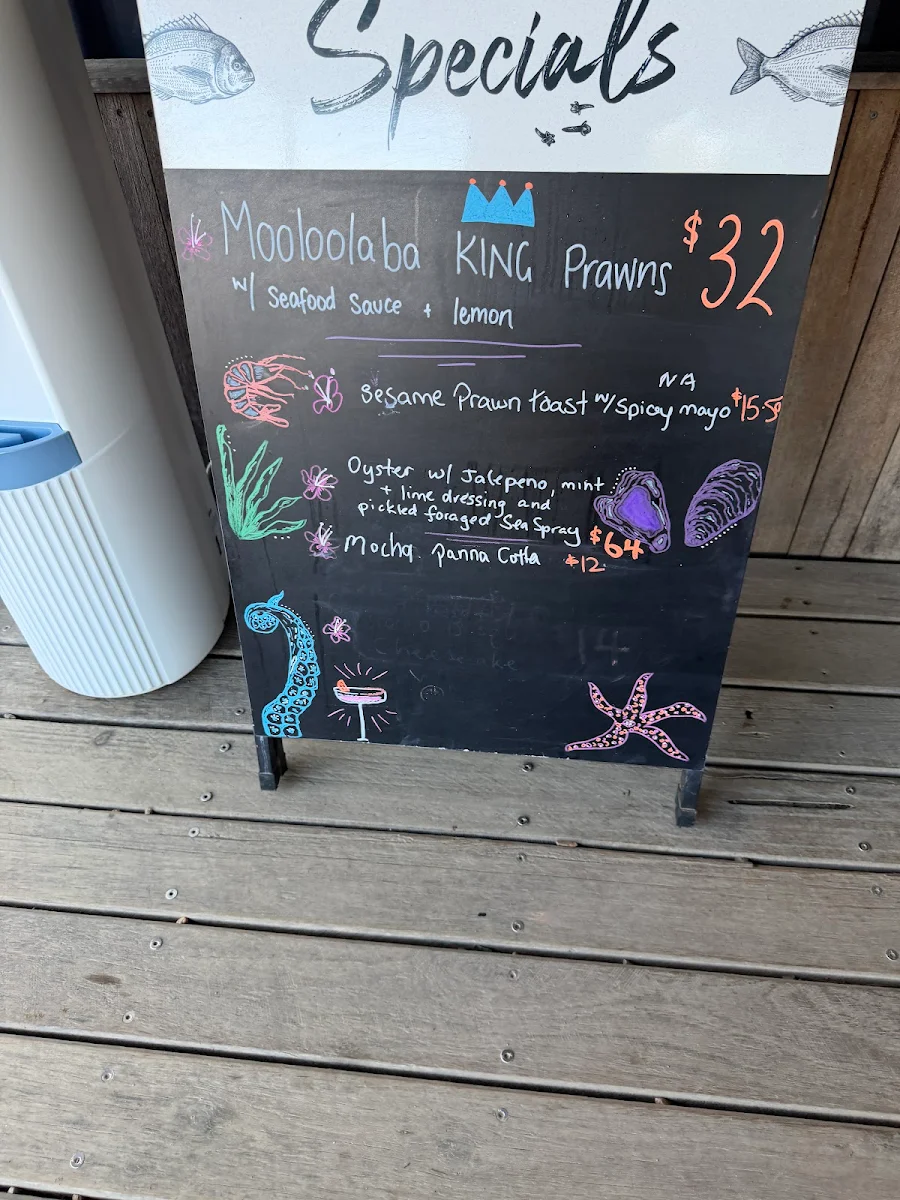 Specials
Mooloolaba KING Prawns $32
w/ Seafood Sauce + lemon
NA
Sesame Prawn toast w/ Spicy mayo $15.50
Oyster w/ Jalepeno, mint
+ lime dressing and
pickled foraged Sea Spray $64
Mocha panna Cotta $12
cheesecake
14